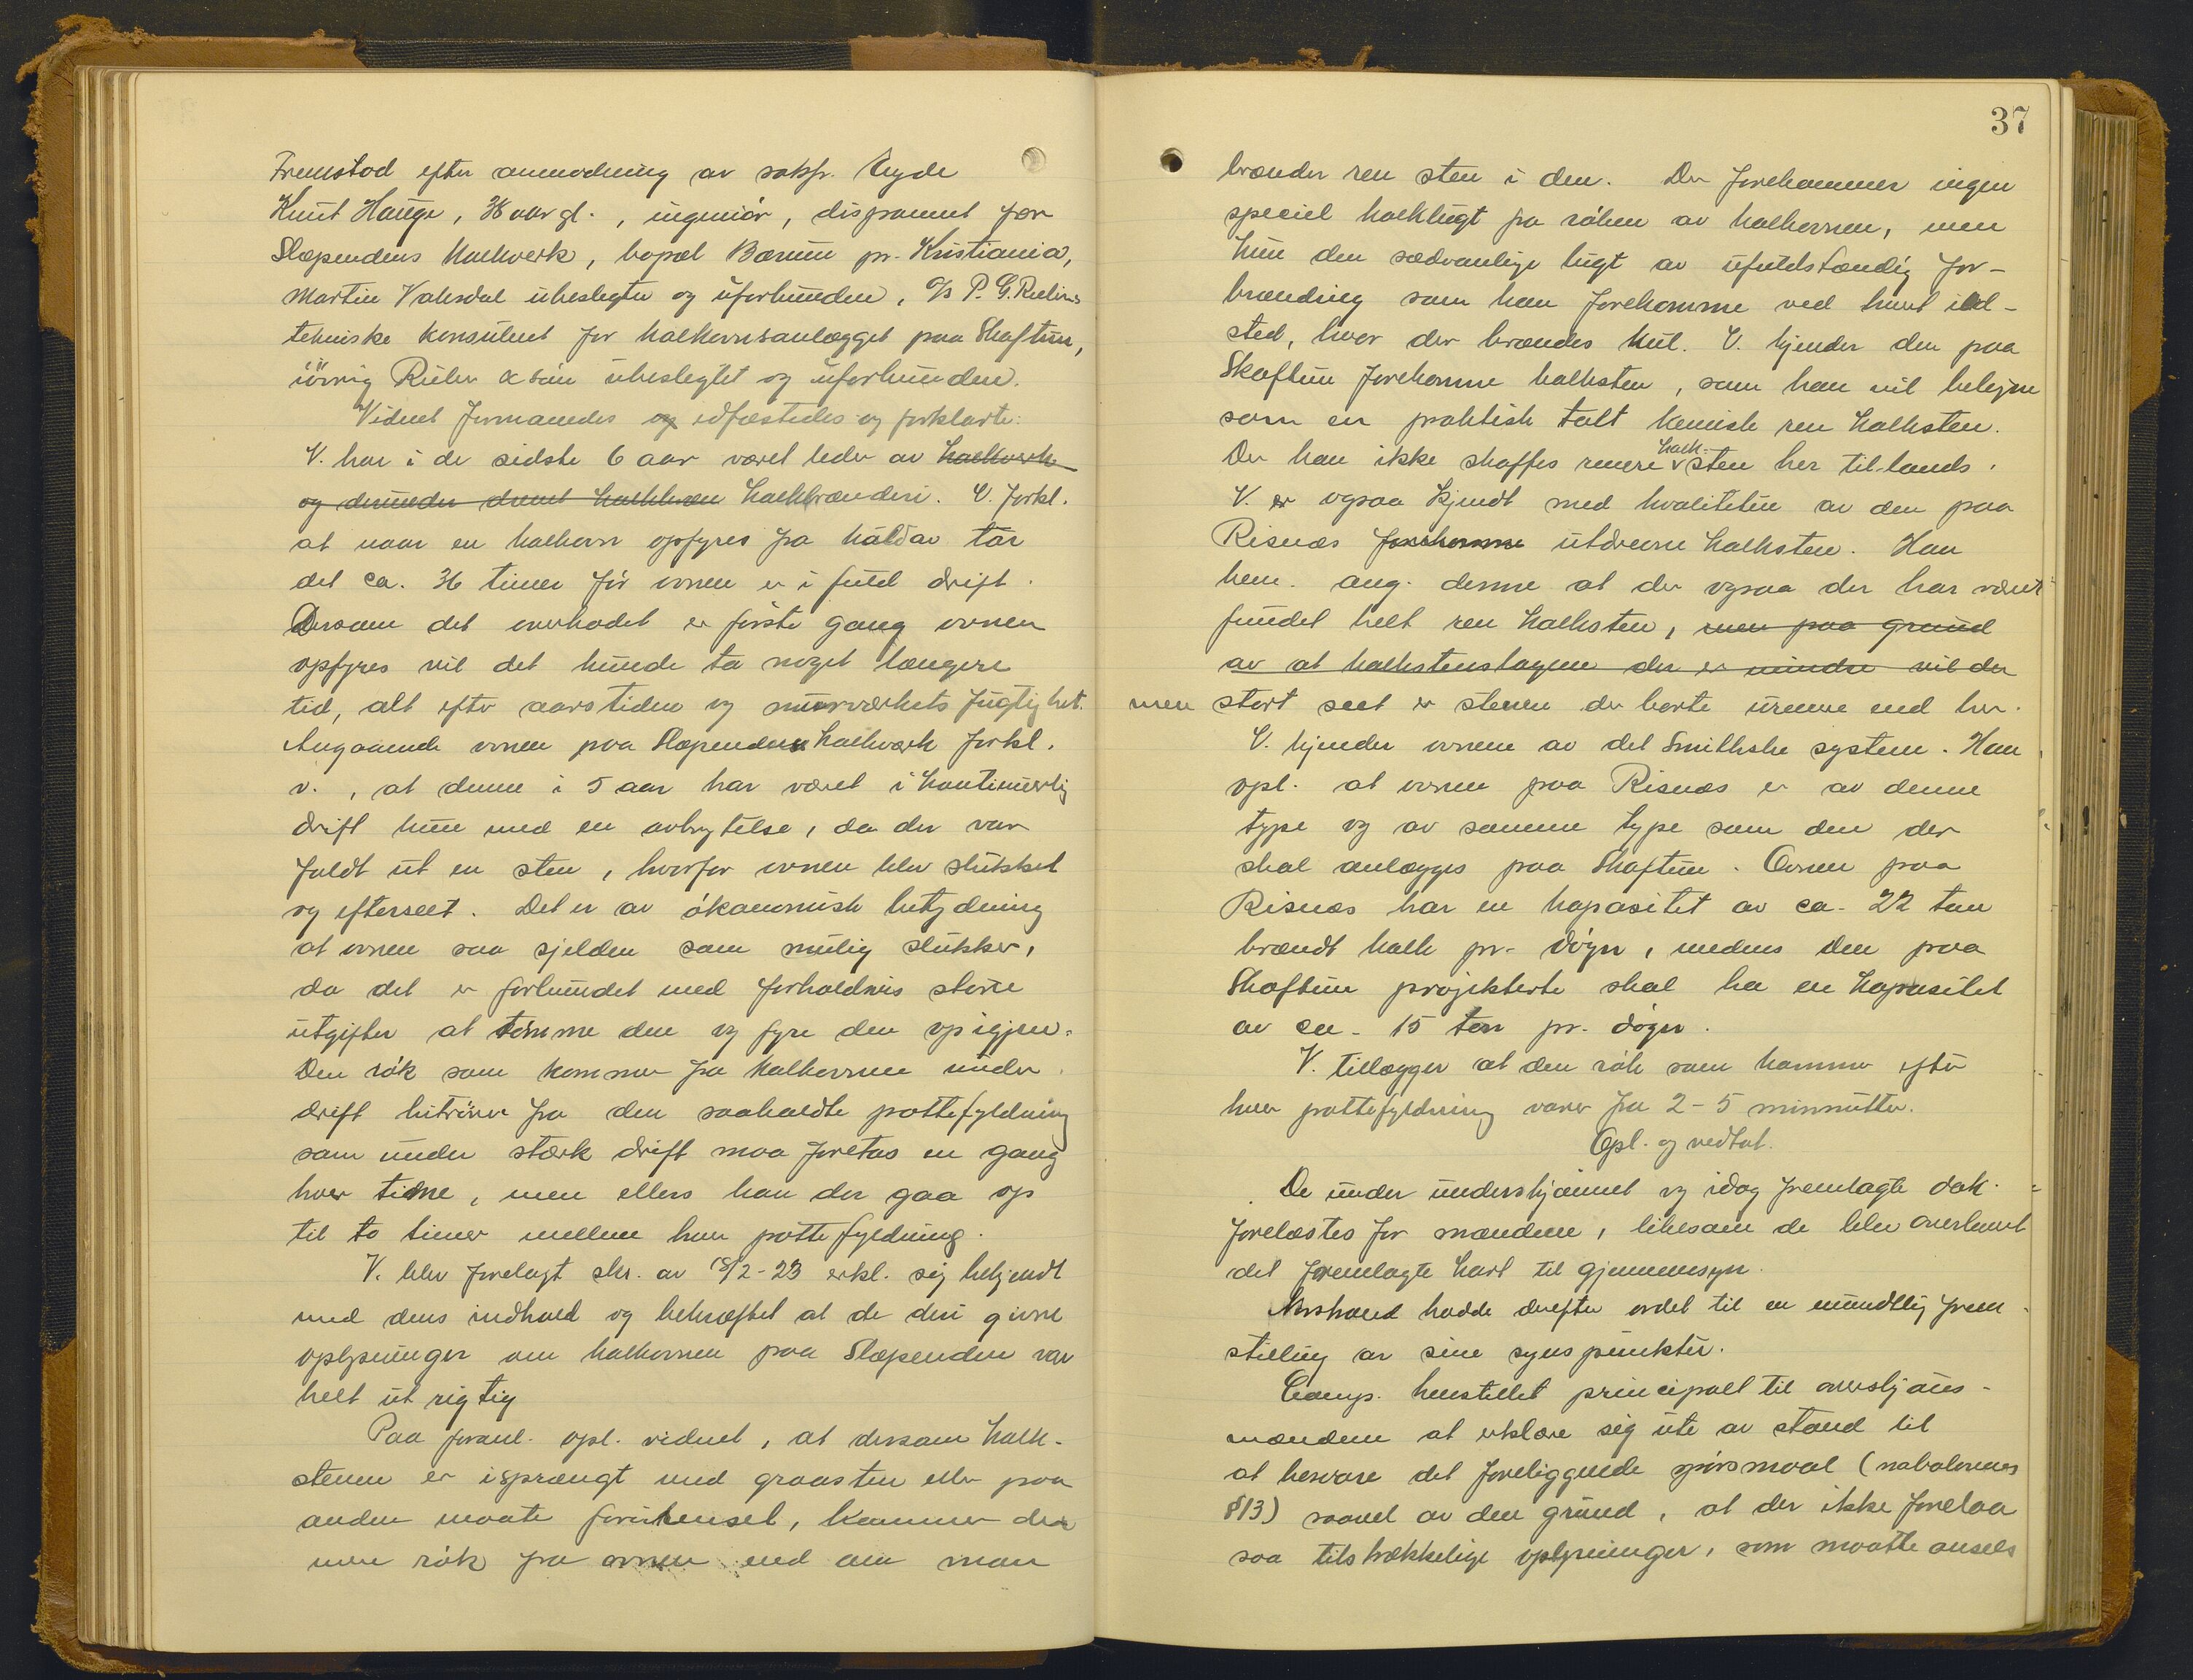 Fremstod efter anmodning av saksf. Eyde
Knut Hauge, 36 aar gl., ingeniør, disponent for
Slependens Kalkverk, bopæl Bærum pr. Kristiania,
Martin Vaksdal ubeslegtet og uforbunden,
tekniske konsulent for kalkovnsanlægget paa Skaftun,
iøvrig ubeslegtet og uforbunden.
Vidnet formanedes og edfæstedes og forklarte:
V. har i de sidste 6 aar været leder av kalkverk
og derunder drevet kalkbrænderi. V. forkl.
at naar en kalkovn opfyres fra kald av tar
det ca. 36 timer før ovnen er i fuld drift.
Dersom det overhodet er første gang ovnen
opfyres vil det kunde ta noget længere
tid, alt efter aarstiden og murverkets fugtighet.
Angaaende ovnen paa Slependens Kalkverk forkl.
v., at denne i 5 aar har været i kontinuerlig
drift kun med en avbrytelse, da der var
faldt ut en sten, hvorfor ovnen blev slukket
og efterseet. Det er av økonomisk betydning
at ovnen saa sjelden som mulig slukker,
da det er forbundet med forholdsvis store
utgifter at tømme den og fyre den op igjen.
Den røk som kommer fra kalkovnen under
drift hitrører fra den saakaldte pottefyldning
som under sterk drift maa foretas en gang
hver time, men ellers kan der gaa op
til to timer mellem hver pottefyldning.
V. blev forelagt skr. av 18/2-23 erkl. sig bekjendt
med dens indhold og bekræftet at de deri givne
oplysninger om kalkovnen paa Slependen var
helt ut rigtig
Paa foranl. opl. vidnet, at dersom kalk-
stenen er isprængt med graasten eller paa
anden maate forurenset, kommer der
mer røk fra ovnen end om man
37
brænder ren sten i den. Der forekommer ingen
speciel kalklugt fra røken av kalkovnen, men
kun den sædvanlige lugt av ufuldstændig for-
brænding som kan forekomme ved hvert ild-
sted, hvor der brændes kul. V. kjender den paa
Skaftun forekomne kalksten, som han vil betegne
som en praktisk talt kemisk ren kalksten.
Der kan ikke skaffes renere kalk-sten her til lands.
V. er ogsaa kjendt med kvaliteten av den paa
Risnes forekomne utdrevne kalksten. Han
bem. ang. denne at der ogsaa der har været
fundet helt ren kalksten, men paa grund
av at kalkstenslagene der er mindre vil der
men stort seet er stenen der borte urenere end her.
V. kjender ovnene av det Smithske system. Han
opl. at ovnen paa Risnes er av denne
type og av samme type som den der
skal anlægges paa Skaftun. Ovnen paa
Risnes har en kapasitet av ca. 22 ton
brændt kalk pr. døgn, medens den paa
Skaftun projekterte skal ha en kapasitet
av ca. 15 ton pr. døgn.
V. tillægger at den røk som kommer efter
hver pottefyldning varer fra 2-5 minnutter.
Opl. og vedtat.
De under underskjønnet og idag fremlagte dok.
forelæstes for mændene, likesom de blev overlevert
det fremlagte kart til gjennemsyn.
hadde derefter ordet til en mundtlig frem-
stilling av sine synspunkter.
henstillet principalt til overskjøns-
mændene at erklære sig ute av stand til
at besvare det foreliggende spørsmaal (nabolovens
§13) saavel av den grund, at der ikke forelaa
saa tilstrækkelige oplysninger, som maatte ansees